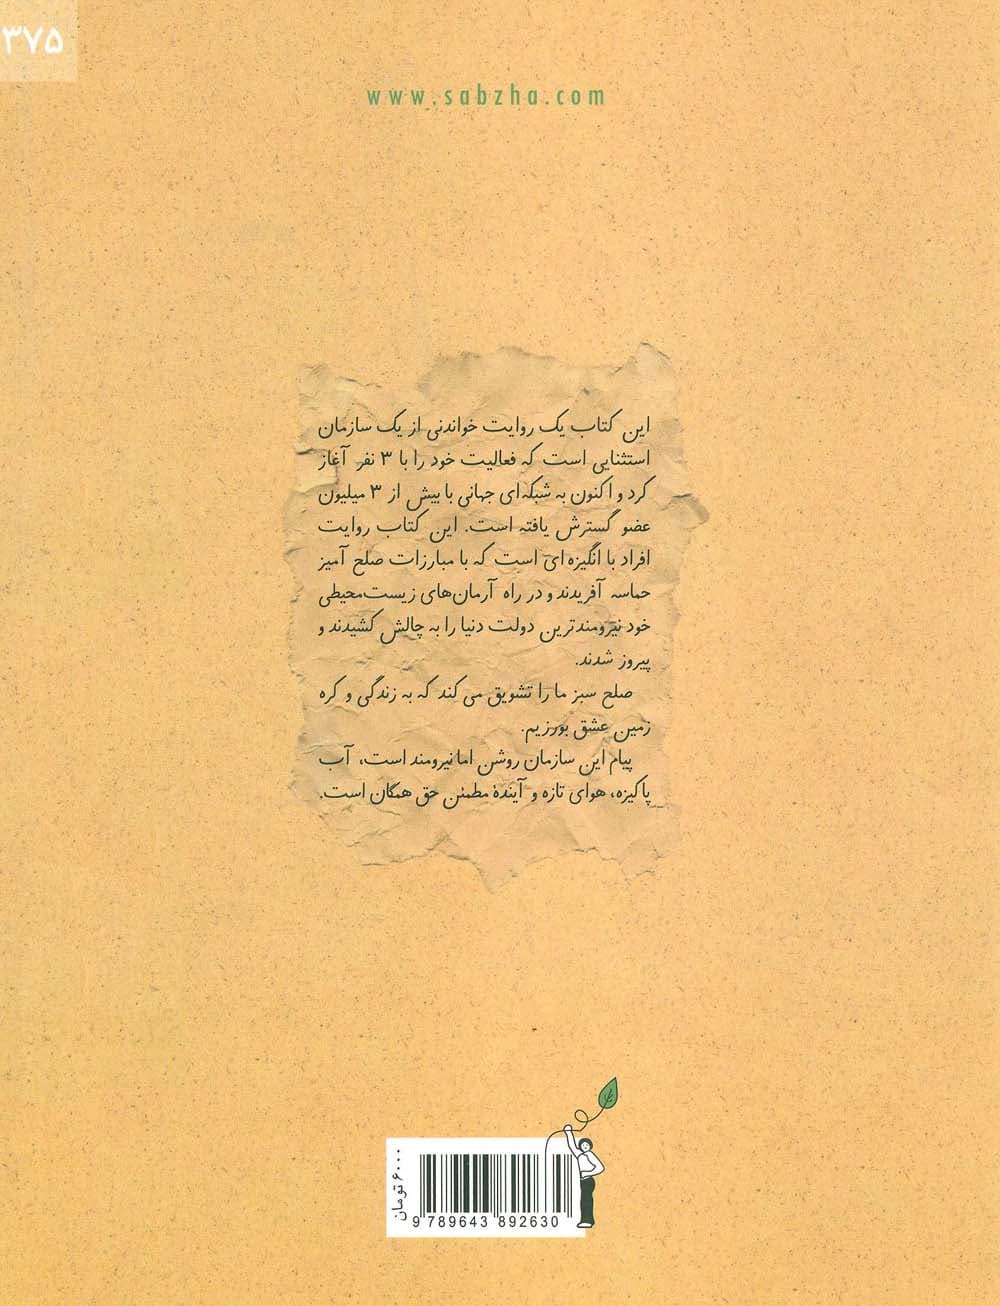 ۳۷۵
www.sabzha.com
این کتاب یک روایت خواندنی از یک سازمان
استثنایی است که فعالیت خود را با ۳ نفر آغاز
کرد و اکنون به شبکه‌ای جهانی با بیش از ۳ میلیون
عضو گسترش یافته است. این کتاب روایت
افراد با انگیزه‌ای است که با مبارزات صلح آمیز
حماسه آفریدند و در راه آرمان‌های زیست‌محیطی
خود نیرومندترین دولت دنیا را به چالش کشیدند و
پیروز شدند.
صلح سبز ما را تشویق می‌کند که به زندگی و کره
زمین عشق بورزیم.
پیام این سازمان روشن اما نیرومند است، آب
پاکیزه، هوای تازه و آیندهٔ مطمئن حق همگان است.
۶۰۰۰ تومان
9 789643 892630